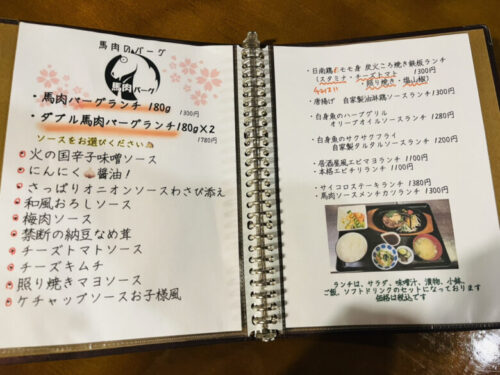 馬肉のバーグ
馬肉バーグ
・馬肉バーグランチ 180g 1300円
・ダブル馬肉バーグランチ180g×2
1780円
ソースをお選びください
火の国辛子味噌ソース
にんにく醬油!
さっぱりオニオンソースわさび添え
和風おろしソース
梅肉ソース
禁断の納豆なめ茸
チーズトマトソース
チーズキムチ
照り焼きマヨソース
ケチャップソースお子様風
・日南鶏モモ身 炭火ころ焼き鉄板ランチ
(スタミナ・チーズトマト 1300円
・照り焼き・塩山椒)
・唐揚げ 自家製油淋鶏ソースランチ 1300円
・白身魚のハーブグリル
オリーブオイルソースランチ 1280円
・白身魚のサクサクフライ
自家製タルタルソースランチ 1300円
・居酒屋風エビマヨランチ 1100円
・本格エビチリランチ 1100円
・サイコロステーキランチ 1380円
・馬肉ソースメンチカツランチ 1300円
ランチは、サラダ、味噌汁、漬物、小鉢、
ご飯、ソフトドリンクのセットになっております
価格は税込です